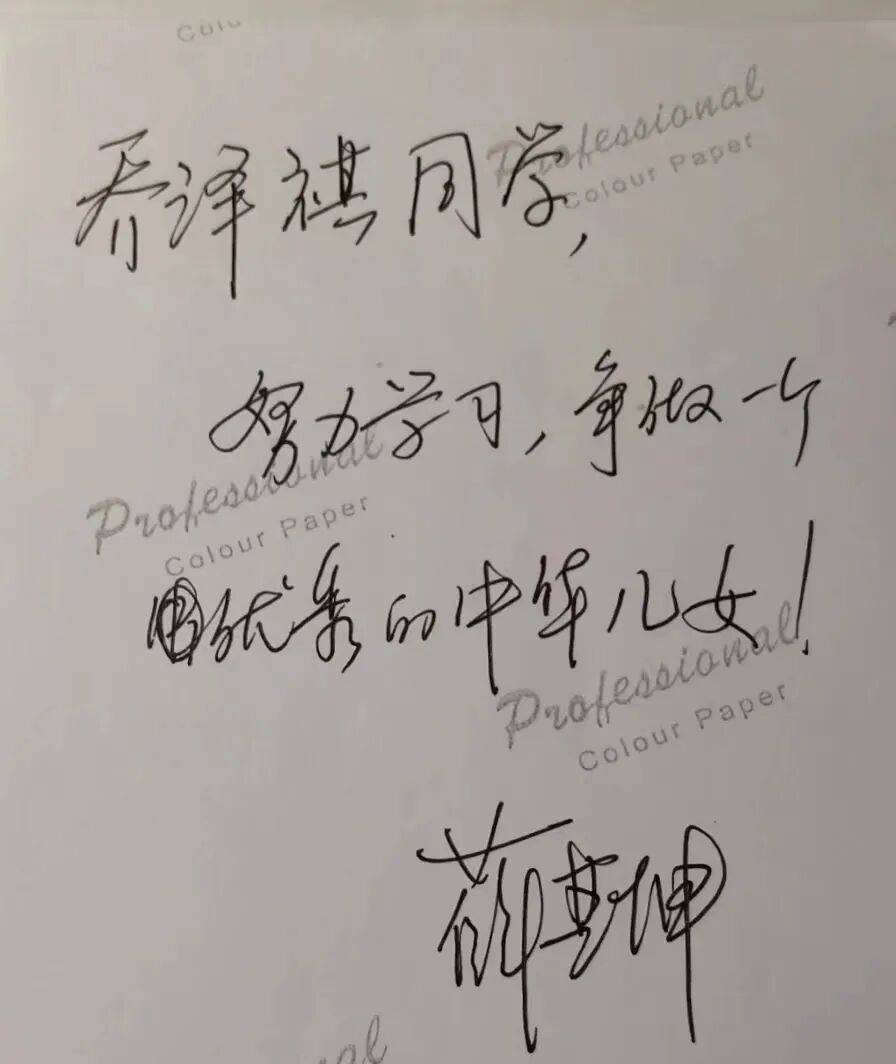 Colo
Professional
Colour Paper
乔译祺同学,
努力学习,争做一个
Professional
Colour Paper
优秀的中华儿女!
Professional
Colour Paper
薛其坤
al